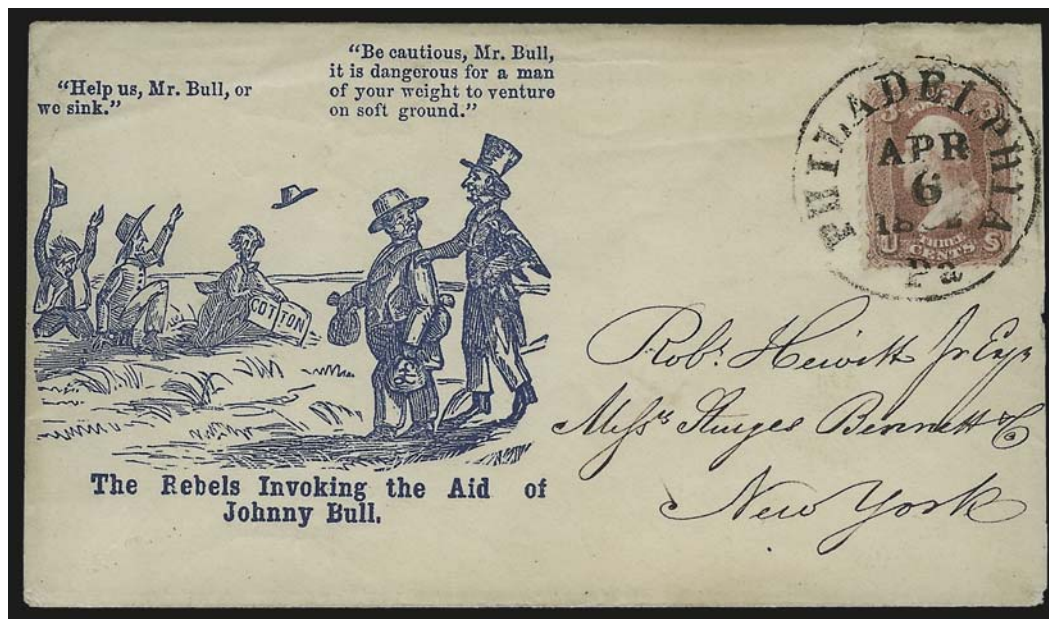 "Help us, Mr. Bull, or
we sink."
"Be cautious, Mr. Bull,
it is dangerous for a man
of your weight to venture
on soft ground."
COTTON
The Rebels Invoking the Aid of
Johnny Bull.
PHILADELPHIA
APR
6
Pa
U S
THREE
CENTS
Robt. Hewitt Jr Esqr
Messrs Sturges Bennett & Co
New York